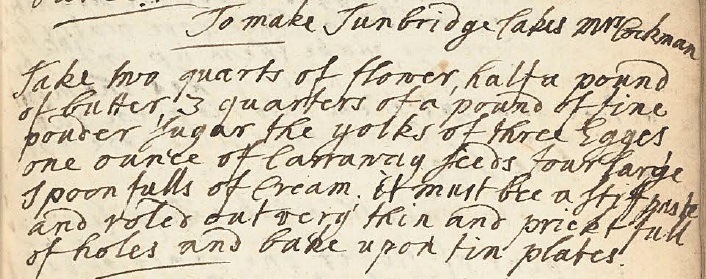 To make Tunbridge Cakes Mrs Cockman
Take two quarts of flower, half a pound
of butter, 3 quarters of a pound of fine
pouder sugar the yolks of three Egges
one ounce of Carraway seeds four large
spoonfulls of Cream. it must bee a stiff paste
and roled out very thin and prickt full
of holes and bake upon tin plates.